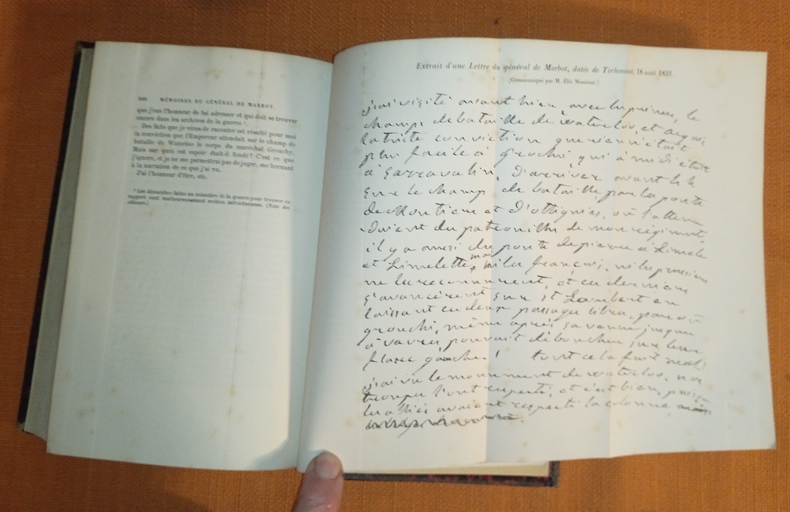 MÉMOIRES DU GÉNÉRAL DE MARBOT.
que j'ose l'honneur de lui adresser et qui doit se trouver
encore dans les archives de la guerre ¹.
Des faits que je viens de raconter est résulté pour moi
la conviction que l'Empereur attendait sur le champ de
bataille de Waterloo le corps du maréchal Grouchy.
Mais sur quoi cet espoir était-il fondé? C'est ce que
j'ignore, et je ne me permettrai pas de juger, me bornant
à la narration de ce que j'ai vu.
J'ai l'honneur d'être, etc.
¹ Les démarches faites au ministère de la guerre pour trouver ce
rapport sont malheureusement restées infructueuses. (Note des
éditeurs.)
Extrait d'une Lettre du général de Marbot, datée de Tirlemont, 18 août 1831.
(Communiquée par M.
j'ai visité avant hier avec le prince, le
champ de bataille de waterloo, et acquis
la triste conviction que rien n'était
plus facile à grouchi, qui à midi était
à Sarravalin, d'arriver avant
sur le champ de bataille par les ponts
de Moutier et d'ottignies, où l'atten
doient des patrouilles de mon régiment,
il y a aussi des ponts de pierre à Limale
et Limelette, mais ni les français, ni les prussiens
ne les reconnurent, et ces derniers
s'avancèrent sur St Lambert en
laissant ces deux passages libres, par où
grouchi, même après sa venue jusque
à Vavres, pouvait déboucher sur leur
flanc gauche! tout cela fait mal!
j'ai vu le monument de waterloo, nos
troupes l'ont respecté, et c'est bien, puisque
les alliés avaient respecté la colonne,